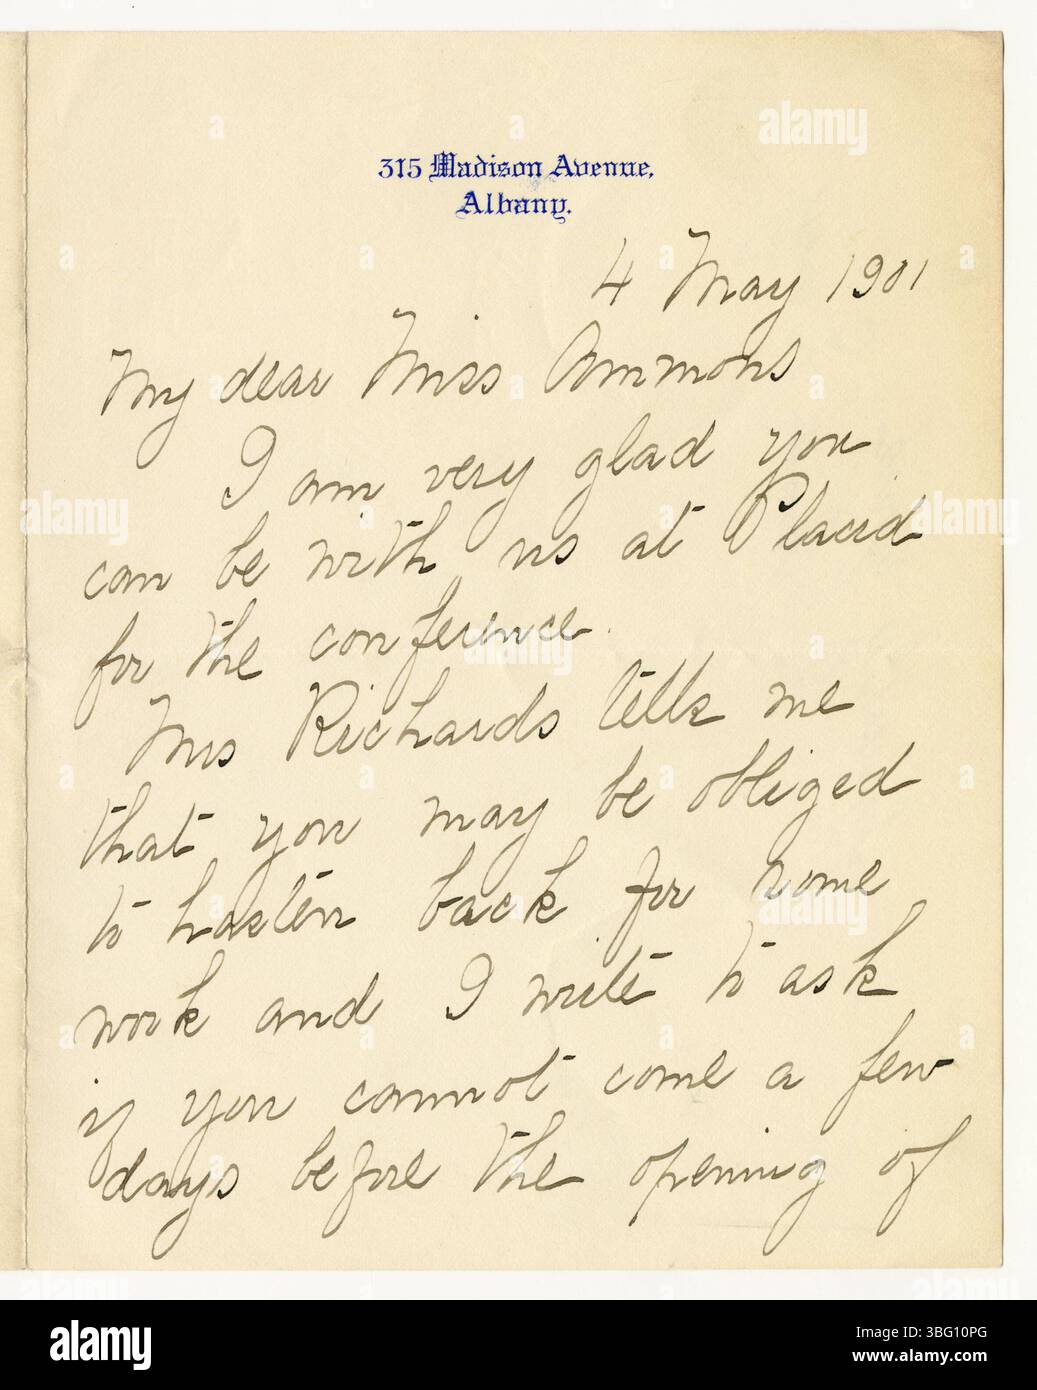 315 Madison Avenue,
Albany.
4 May 1901
My dear Miss Ammons
I am very glad you
can be with us at Placid
for the conference.
Mrs Richards tells me
that you may be obliged
to hasten back for some
work and I write to ask
if you cannot come a few
days before the opening of
alamy
Image ID: 3BG10PG
www.alamy.com